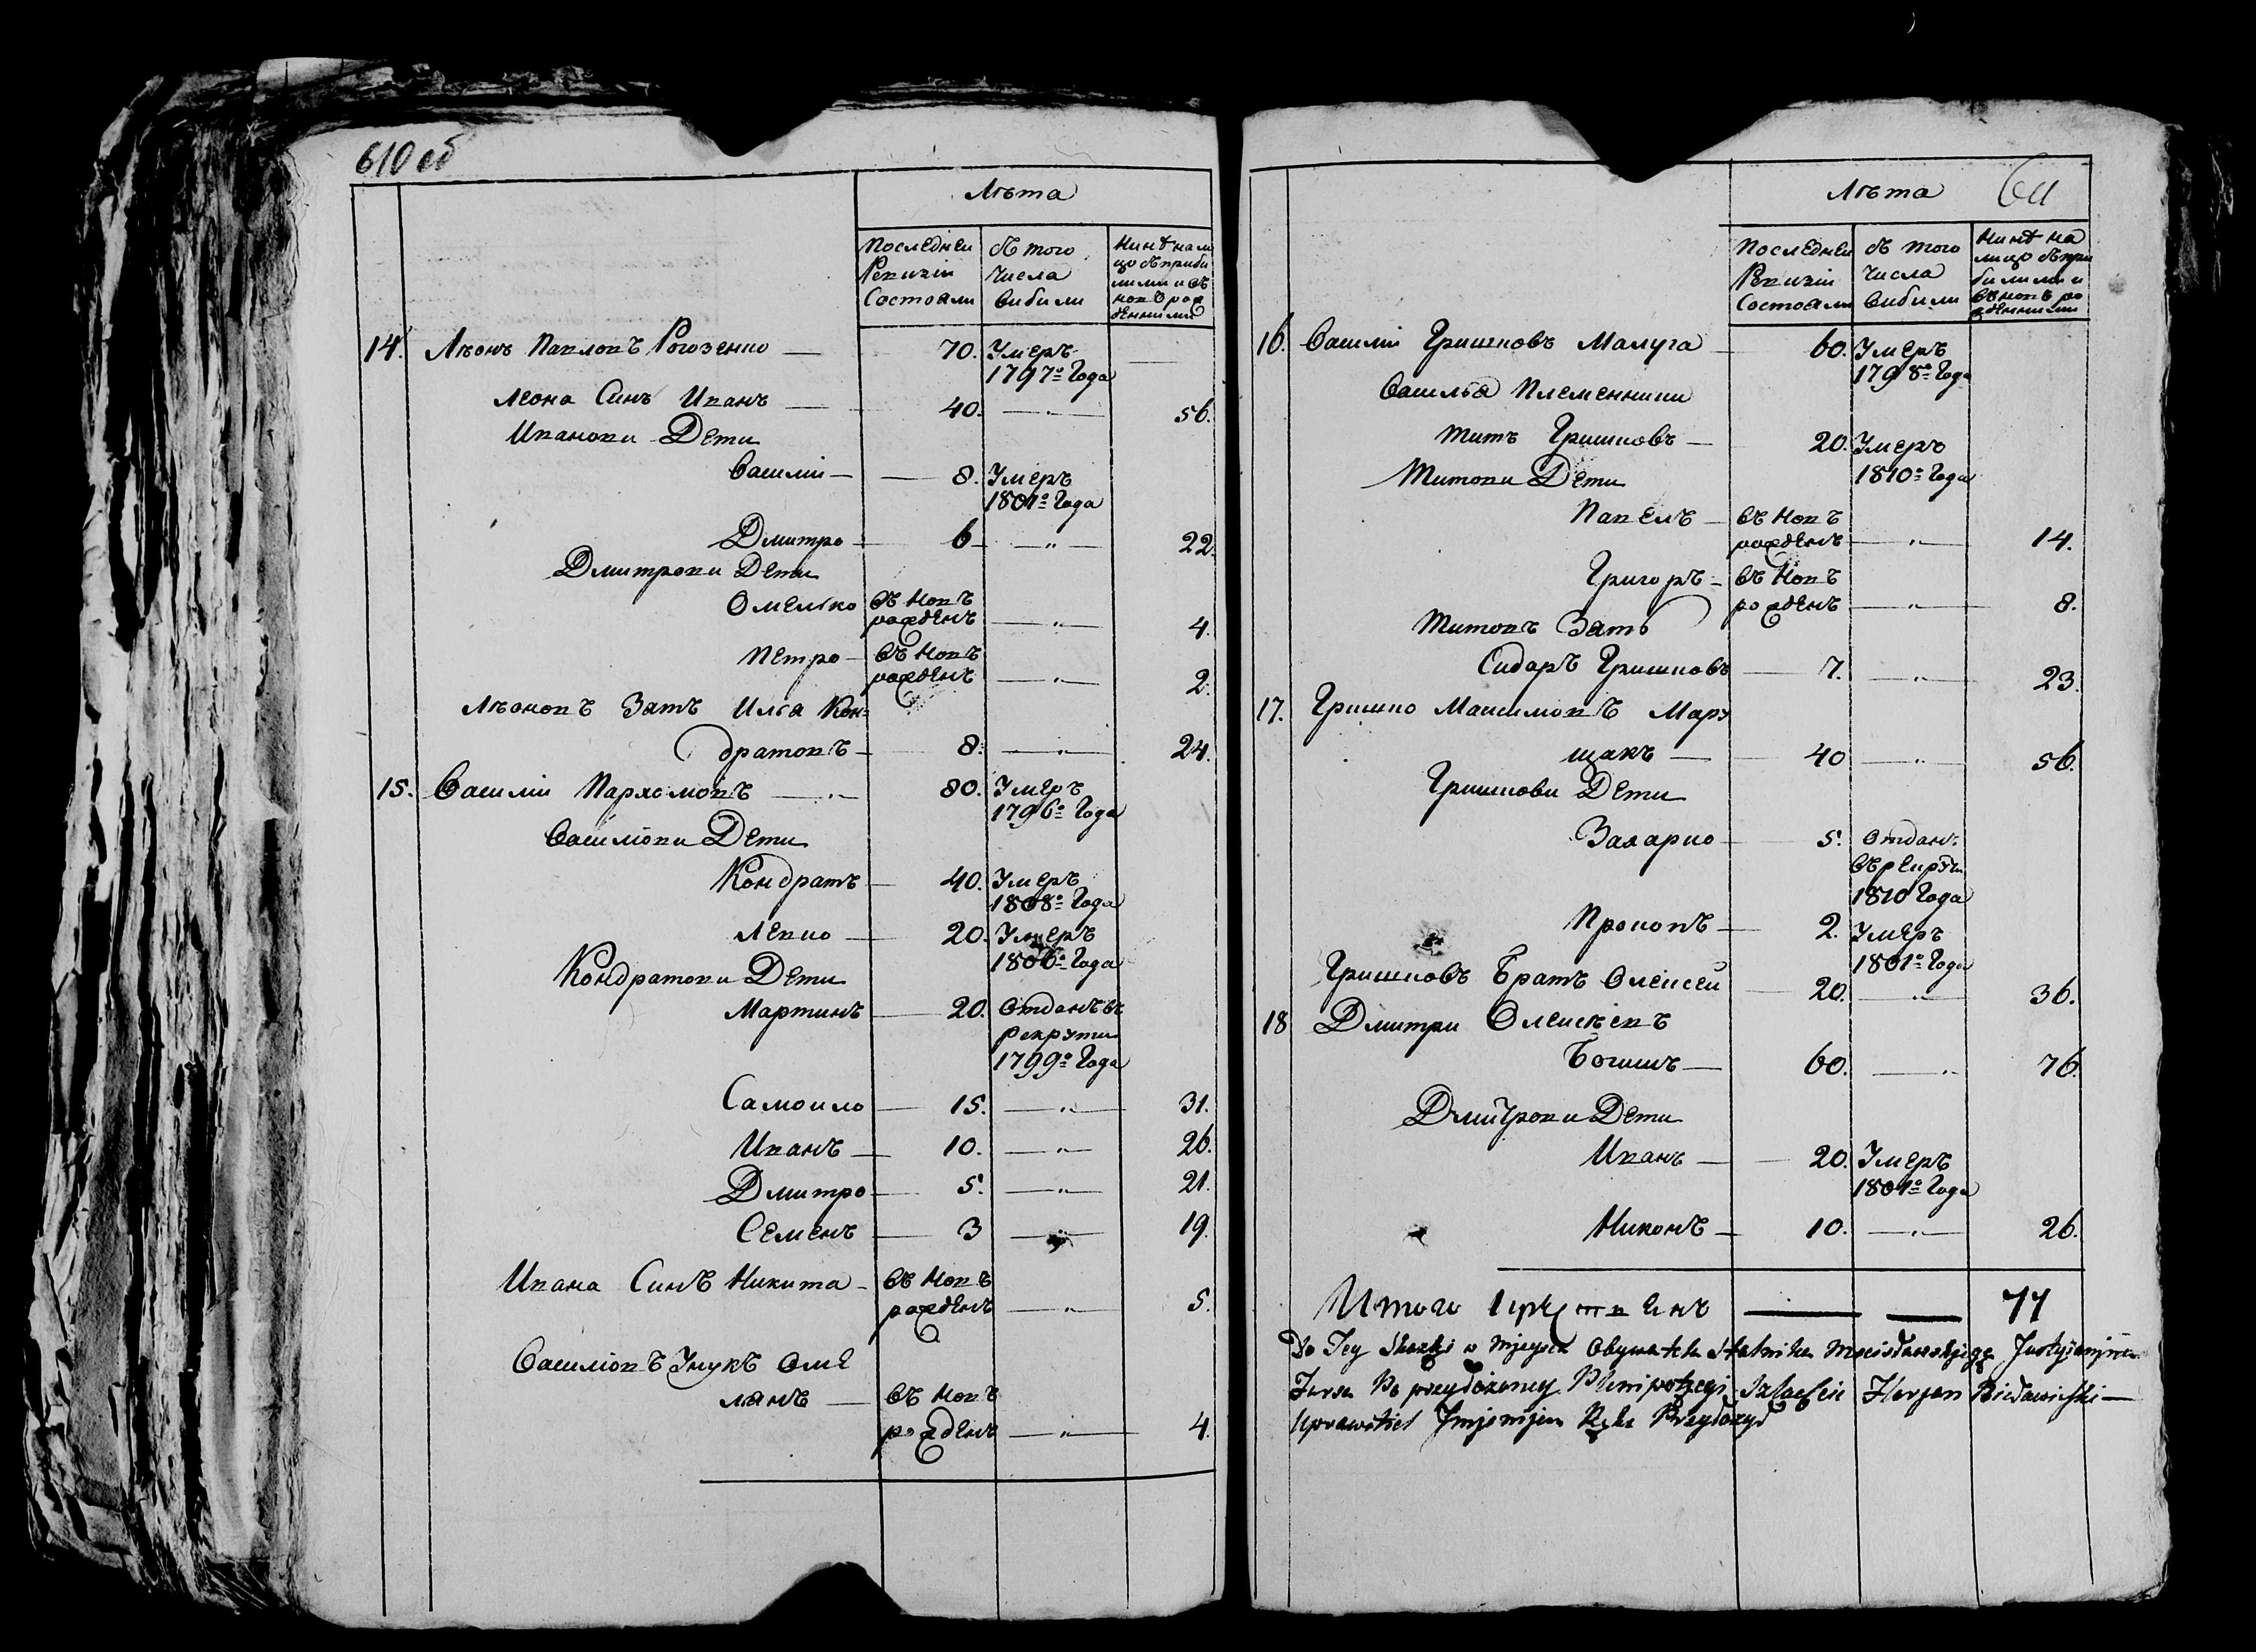 610 об
Лѣта
Последней Ревизіи Состояли
въ того Числа выбыли
Нинѣ на лицо съ прибилими и въ новѣ рожденними
14. Лѣонъ Павловъ Рогозенко — 70. Умеръ —
1797го Года
Леона Синъ Иванъ — 40. — 56.
Ивановы Дети
Василій — 8. Умеръ
1801го Года
Дмитро — 6 — 22.
Дмитровы Дети
Омелько въ новѣ
рожденъ — 4.
Петро — въ новѣ
рожденъ — 2.
Лѣоновъ Зять Илья Кон=
дратовъ — 8. — 24.
15. Василій Пархомовъ — 80. Умеръ
1796го Года
Василіовы Дети
Кондратъ — 40. Умеръ
1808го Года
Левко — 20. Умеръ
1806го Года
Кондратовы Дети
Мартинъ — 20. Отданъ въ
рекруты
1799го Года
Самойло — 15. — 31.
Иванъ — 10. — 26.
Дмитро — 5. — 21.
Семенъ — 3 — 19.
Ивана Синъ Никита — въ новѣ
рожденъ — 5.
Василіовъ Унукъ Оме
лянъ — въ новѣ
рожденъ — 4.
611
Лѣта
Последней Ревизіи Состояли
въ того Числа выбыли
Нинѣ на лицо съ прибилими и въ новѣ рожденними
16. Василій Гришковъ Малуга — 60. Умеръ
1798го Года
Василья Племенники
Титъ Гришковъ — 20. Умеръ
Титовы Дети 1810го Года
Павелъ — въ новѣ
рожденъ — 14.
Григоръ — въ новѣ
рожденъ — 8.
Титовъ Зять
Сидаръ Гришковъ — 7. — 23.
17. Гришко Максимовъ Мару
щакъ — 40 — 56.
Гришкови Дети
Захарко — 5. Отданъ
въ рекруты
1810 Года
Прокопъ — 2. Умеръ
1801го Года
Гришковъ Братъ Олексей — 20. — 36.
18 Дмитри Олексѣевъ
— 60. — 76.
Дмитровы Дети
Иванъ — 20. Умеръ
1801го Года
Никонъ — 10. — 26.
Итого — — 77
Do Tey Skazki w Miejscu Obywatela
Uprawitiel Jmjenijem Rękę Przyłożył